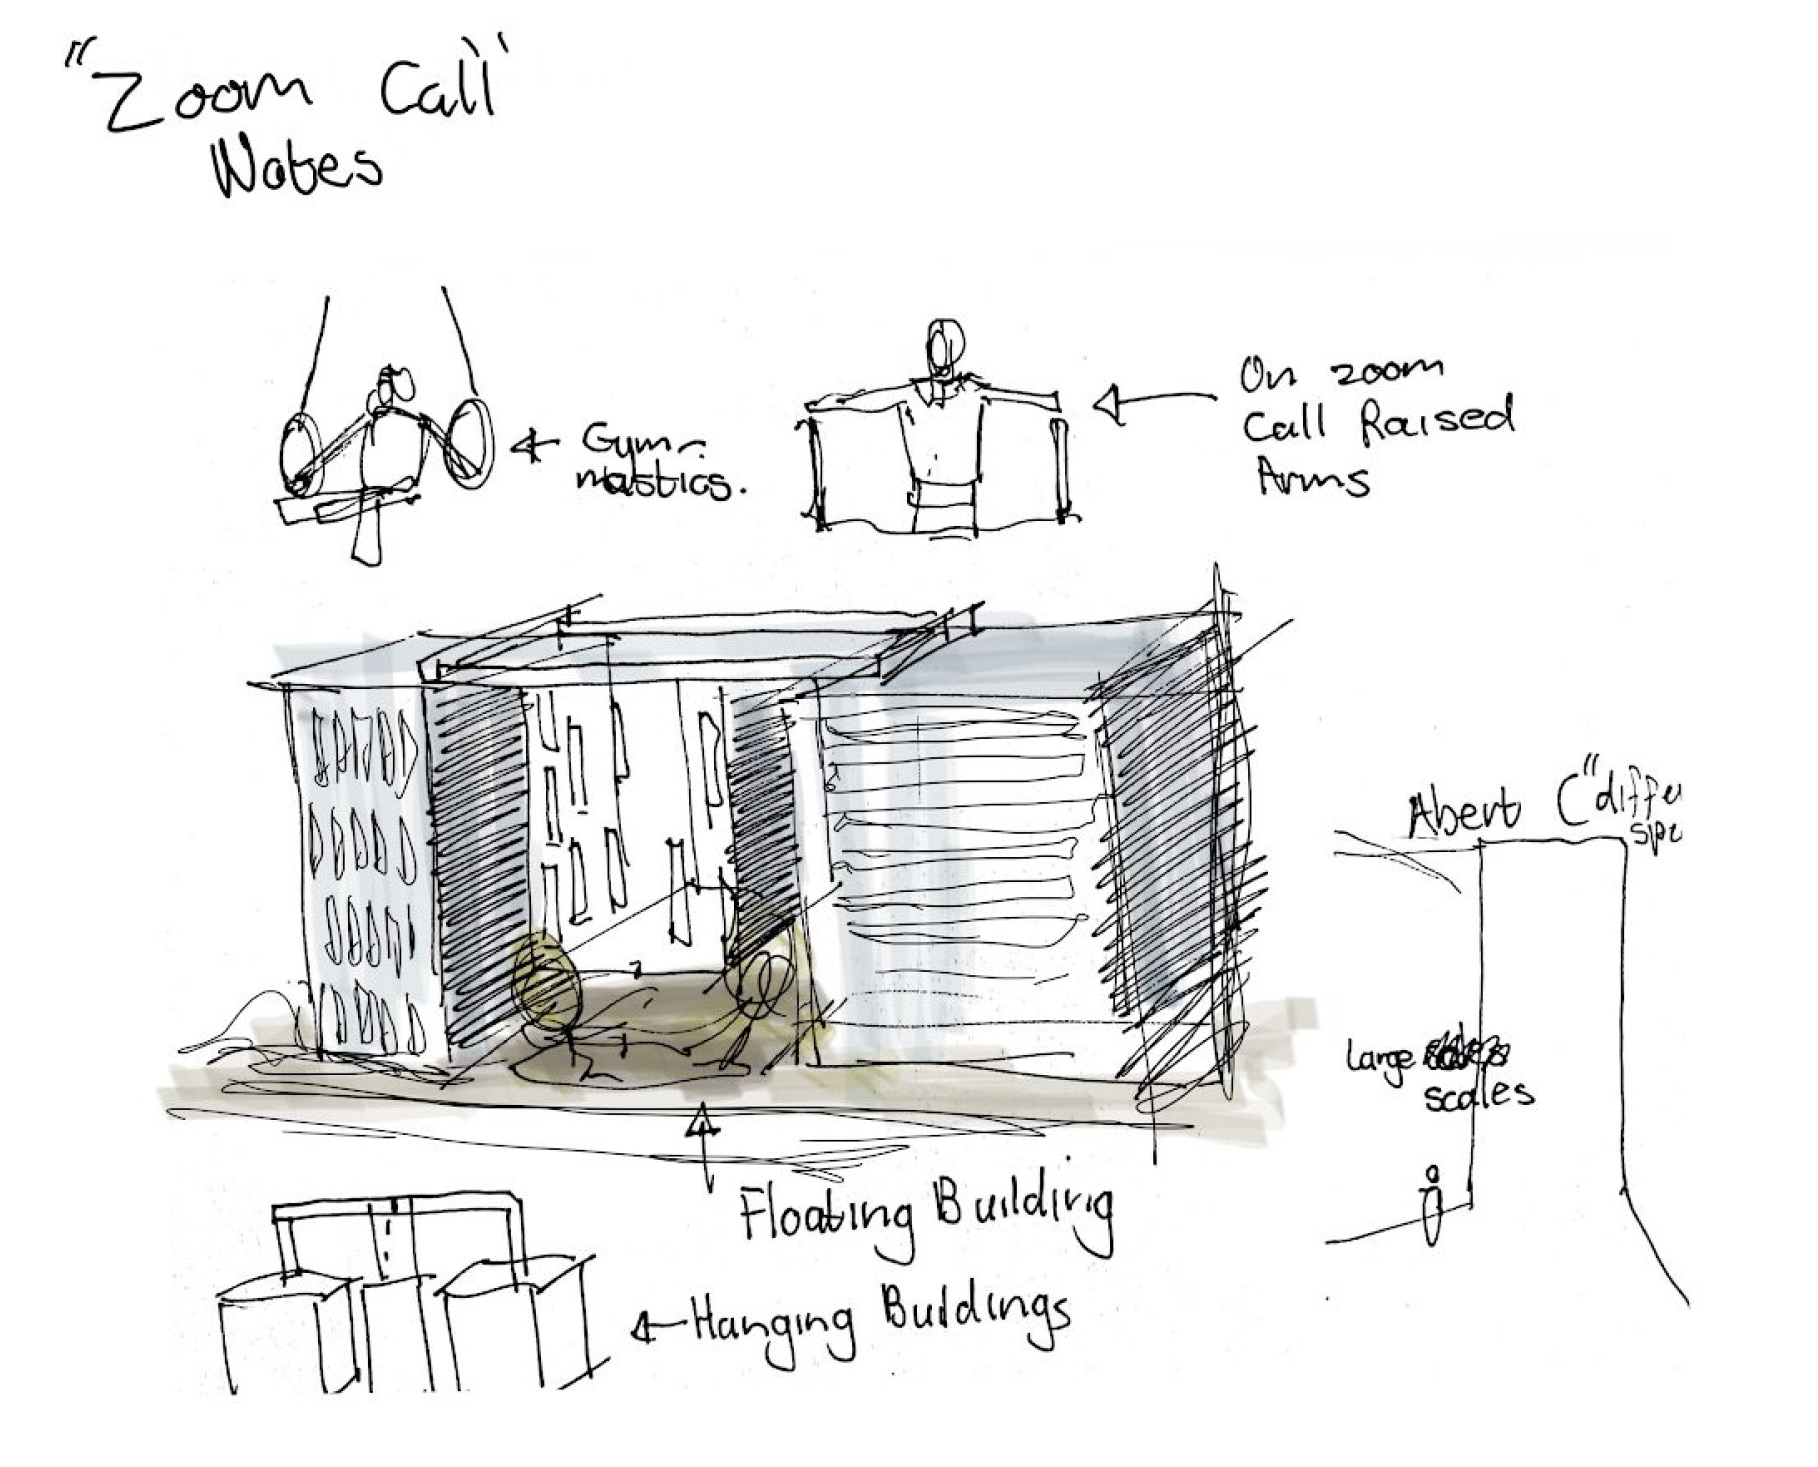 "Zoom Call"
Notes
Gym-
nastics.
On zoom
Call Raised
Arms
Abert C"diffe
large
scales
Floating Building
Hanging Buildings